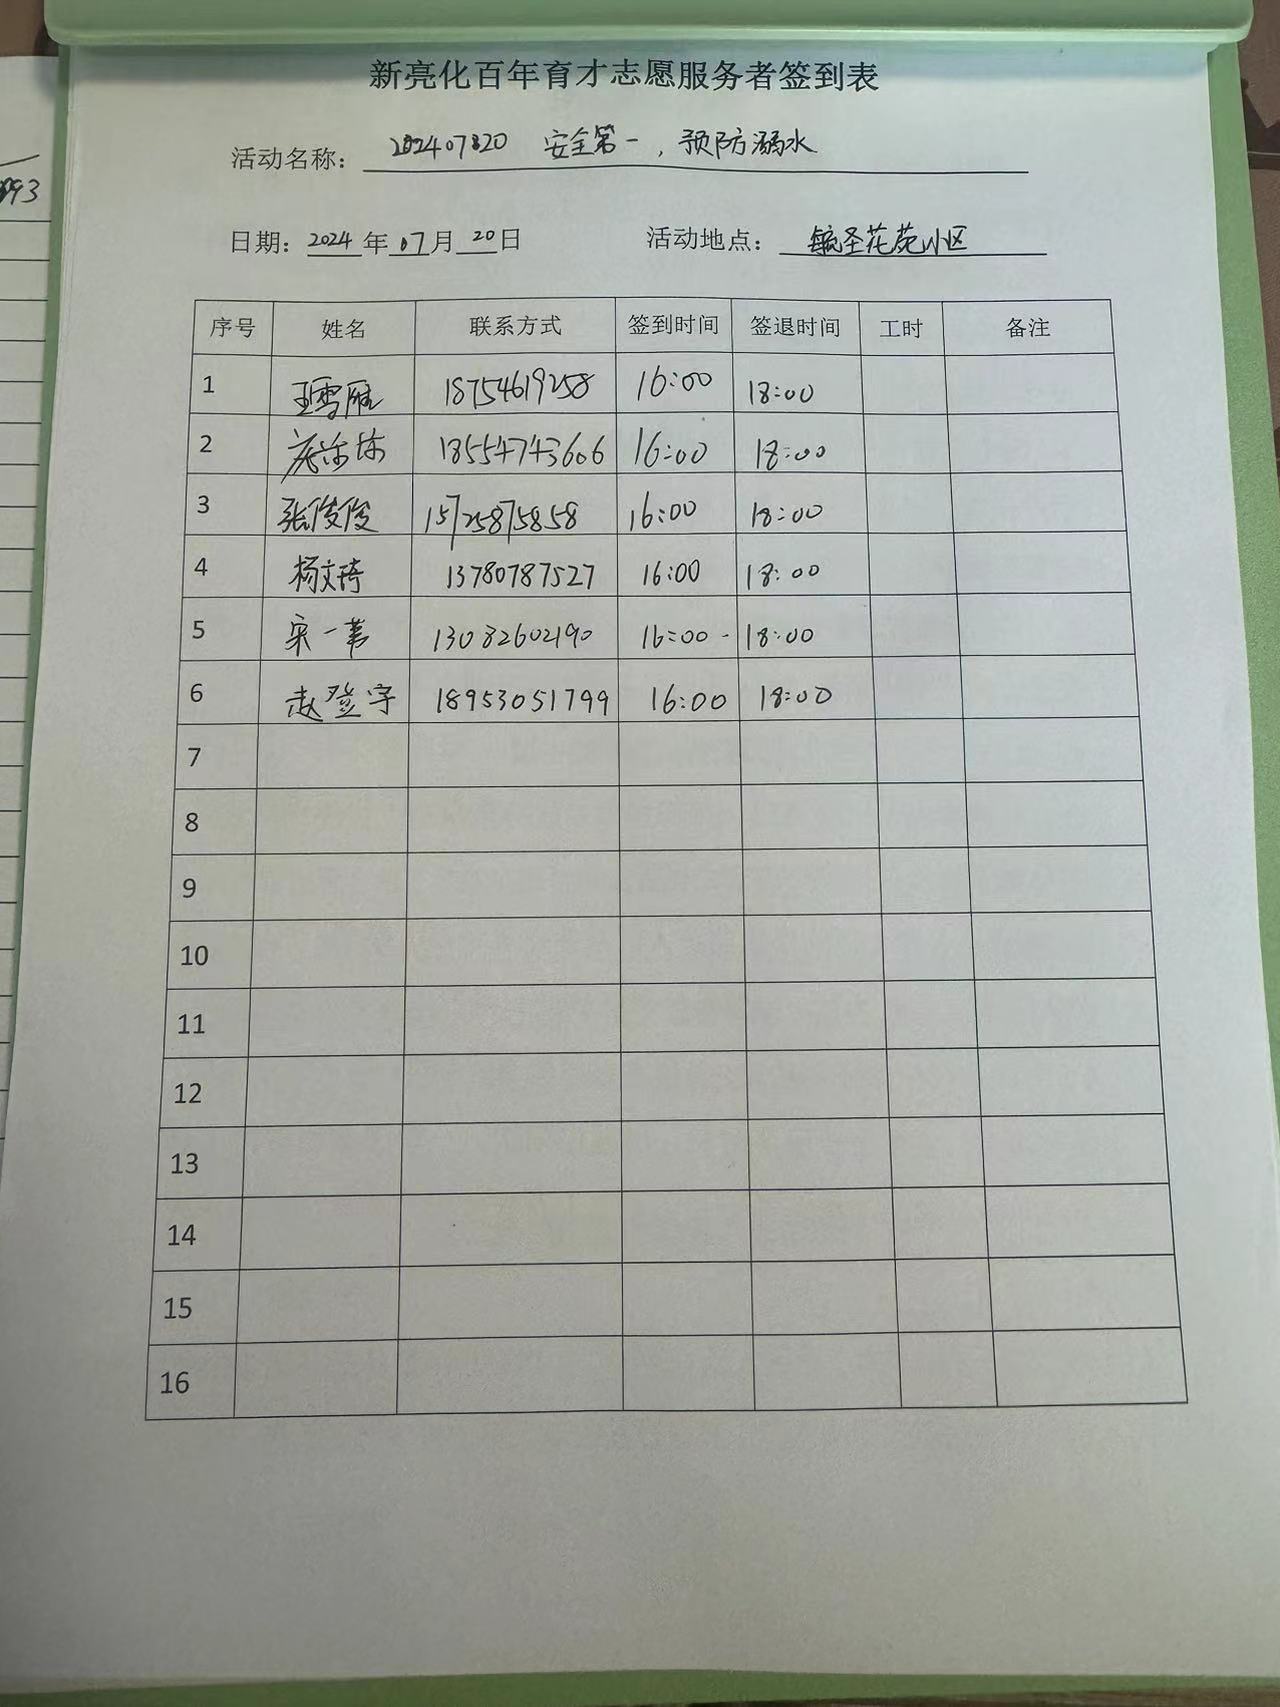 新亮化百年育才志愿服务者签到表
活动名称: 20240720 安全第一，预防溺水
日期: 2024 年 07 月 20 日 活动地点: 毓圣花苑小区
序号 姓名 联系方式 签到时间 签退时间 工时 备注
1 王雪雁 18754619258 16:00 18:00
2 18554743606 16:00 18:00
3 张俊俊 15725875858 16:00 18:00
4 杨文琦 13780787527 16:00 18:00
5 宋一苇 13032602190 16:00 - 18:00
6 赵登宇 18953051799 16:00 18:00
7
8
9
10
11
12
13
14
15
16